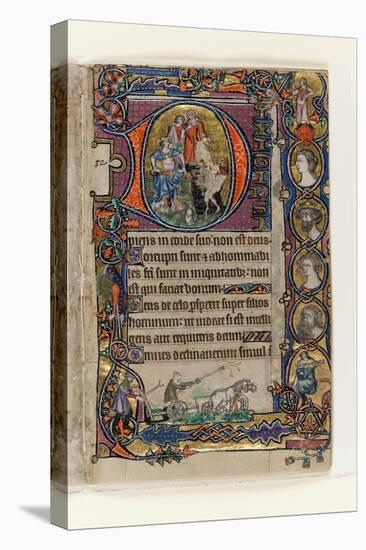 DIXIT IN
52
piens in corde suo non est deus
Corrupti sunt & abhominabi
les fci sunt in iniquitatib; non
est qui faciat bonum
Deus de celo prospexit super filios
hominum: ut uideat si est intelli
gens aut requirens deum
Omnes declinauerunt simul i